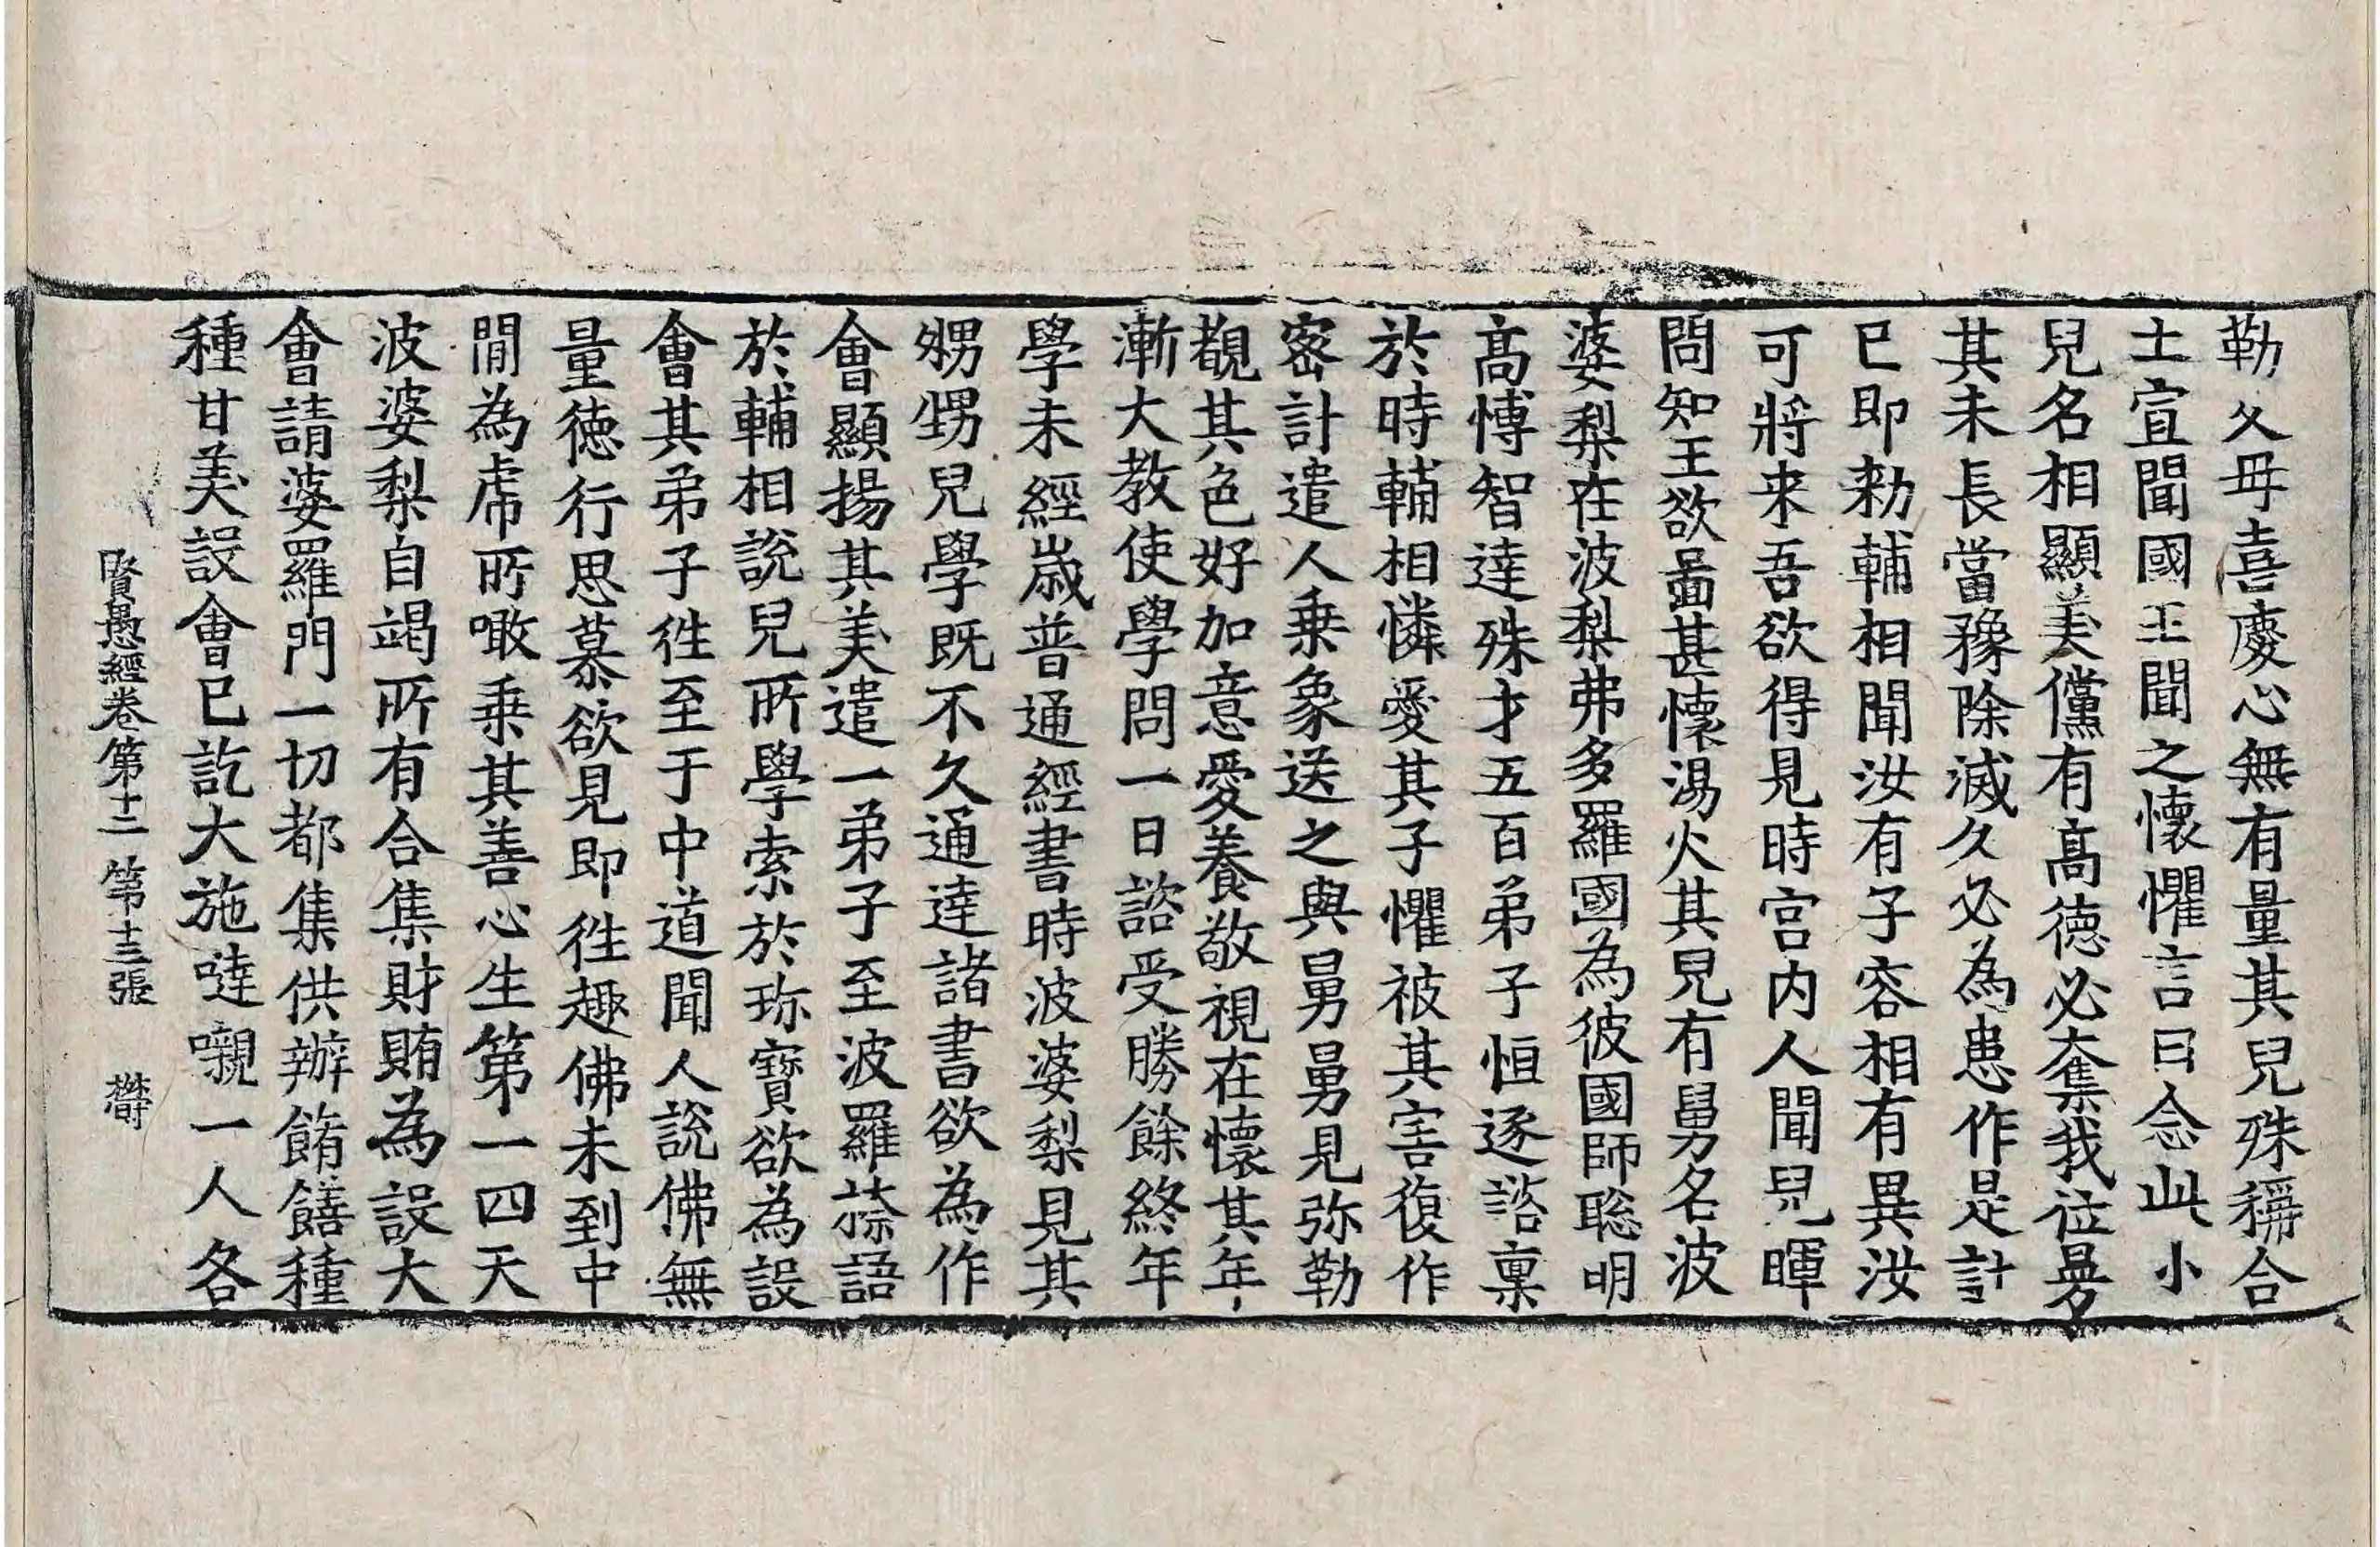 勒父母喜慶心無有量其兒殊稱合
土宣聞國王聞之懷懼言曰念此小
兒名相顯美儻有高德必奪我位曼
其未長當豫除滅久必為患作是計
已即勑輔相聞汝有子容相有異汝
可將来吾欲得見時宮内人聞兒暉
問知王欲啚甚懷湯火其兒有舅名波
婆梨在波梨弗多羅國為彼國師聡明
高愽智達殊才五百弟子恒逐諮稟
於時輔相憐愛其子懼被其害復作
密計遣人乗象送之與舅舅見弥勒
覩其色好加意愛養敬視在懷其年
漸大教使學問一日諮受勝餘終年
學未經歳普通經書時波婆梨見其
甥甥兒學既不久通達諸書欲為作
會顯揚其美遣一弟子至波羅㮈語
於輔相說兒所學索於珎寶欲為設
會其弟子徃至于中道聞人說佛無
量徳行思慕欲見即徃趣佛未到中
間為虎所噉乗其善心生第一四天
波婆梨自竭所有合集財賄為設大
會請婆羅門一切都集供辦餚饍種
種甘美設會已訖大施噠嚫一人各
賢愚經卷第十二　第十三張